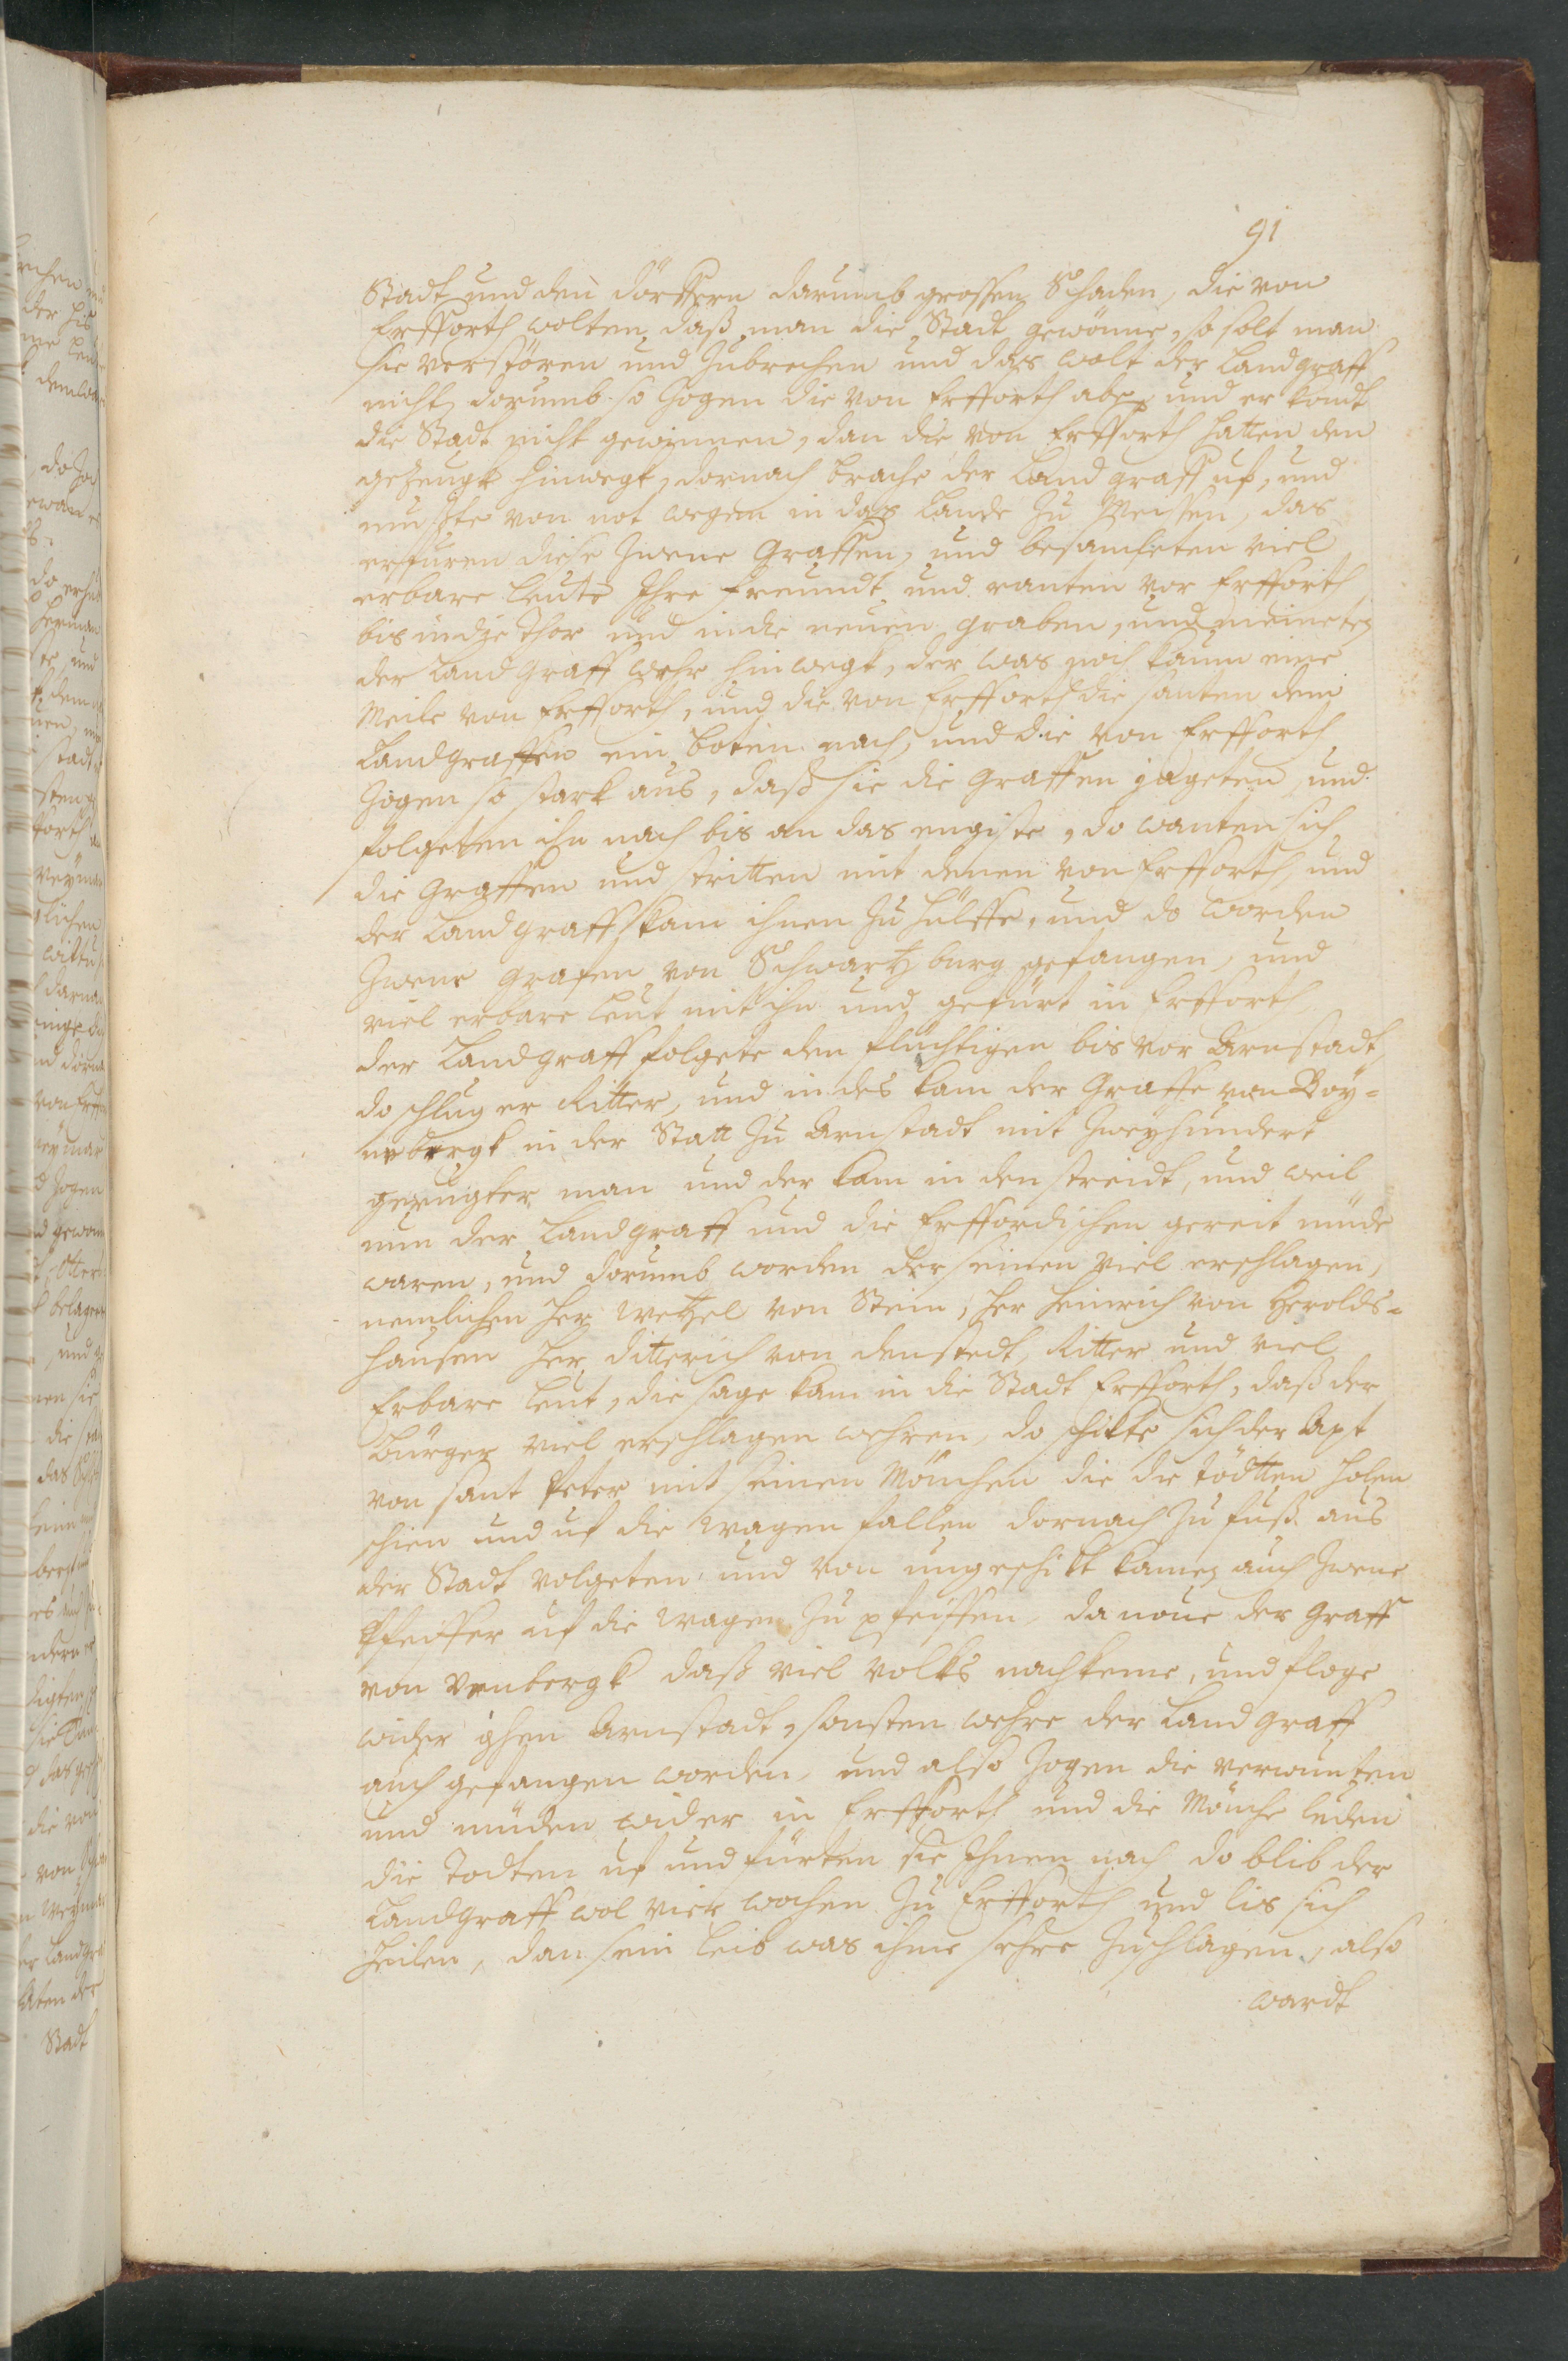 91
Stadt und den dörffern darumb grossen Schaden, die von
Erfforth wolten daß man die Stadt gewönne, so solt man
sie verstören und zubrechen und das wolt der Landgraff
nicht, dorumb so zogen die von Erfforth abe und er kondt
die Stadt nicht gewinnen, dan die von Erfforth hatten den
gezeugk hinwegk, dornach brache der Landgraff uf, und
muste von not wegen in das Lande zu Meissen, das
erfuren diese zwene Graffen, und besamleten viel
erbare leute Ihre freundt und ranten vor Erfforth
bis in die Thor und in die neuen graben, und meineten
der Landgraff wehr hinwegk, der was noch kaum eine
Meile von Erfforth, und die von Erfforth die santen dem
Landgraffen ein boten nach, und die von Erfforth
zogen so stark aus, daß sie die Graffen jageten, und
folgeten ihn nach bis an das engiste, do wanten sich
die Graffen und stritten mit denen von Erfforth, und
der Landgraff kam ihnen zu hülffe, und do worden
zwene grafen von Schwartzburg gefangen, und
viel erbare leut mit ihn und gefürt in Erfforth,
der Landgraff folgete den flüchtigen bis vor Arnstadt,
do schlug er Ritter, und indes kam der Graffe von Boy=
nebergk in der Statt zu Arnstadt mit zweyhundert
gezeugter man und der kam in den streidt, und weil
nun der Landgraff und die Erffordischen gereit müde
waren, und dorumb worden der seinen viel erschlagen,
nemlichen her Wetzel von Stein, her Heinrich von Herolds=
hausen her ditterich von denstedt, Ritter und viel
Erbare leut, die sage kam in die Stadt Erfforth, daß der
Bürger viel erschlagen wehren, do schikte sich der Apt
von sant Peter mit seinen Mönchen die die tödtten holen
schien und uf die wagen fallen dornach zu fuß aus
der Stadt volgeten und von ungeschikt kamen auch zwene
Pfeiffer uf die wagen zu pfeiffen, da  der Graff
von  daß viel volks nachkeme, und floge
wider ghen Arnstadt, sonsten wehre der Landgraff
auch gefangen worden, und also zogen die verwunten
und müden wider in Erfforth und die Mönche luden
die Todten uf und fürten sie Ihnen nach do blib der
Landgraff wol vier wochen zu Erfforth und lis sich
heilen, dan sein leib was ihme sehre zuschlagen, also
wardt